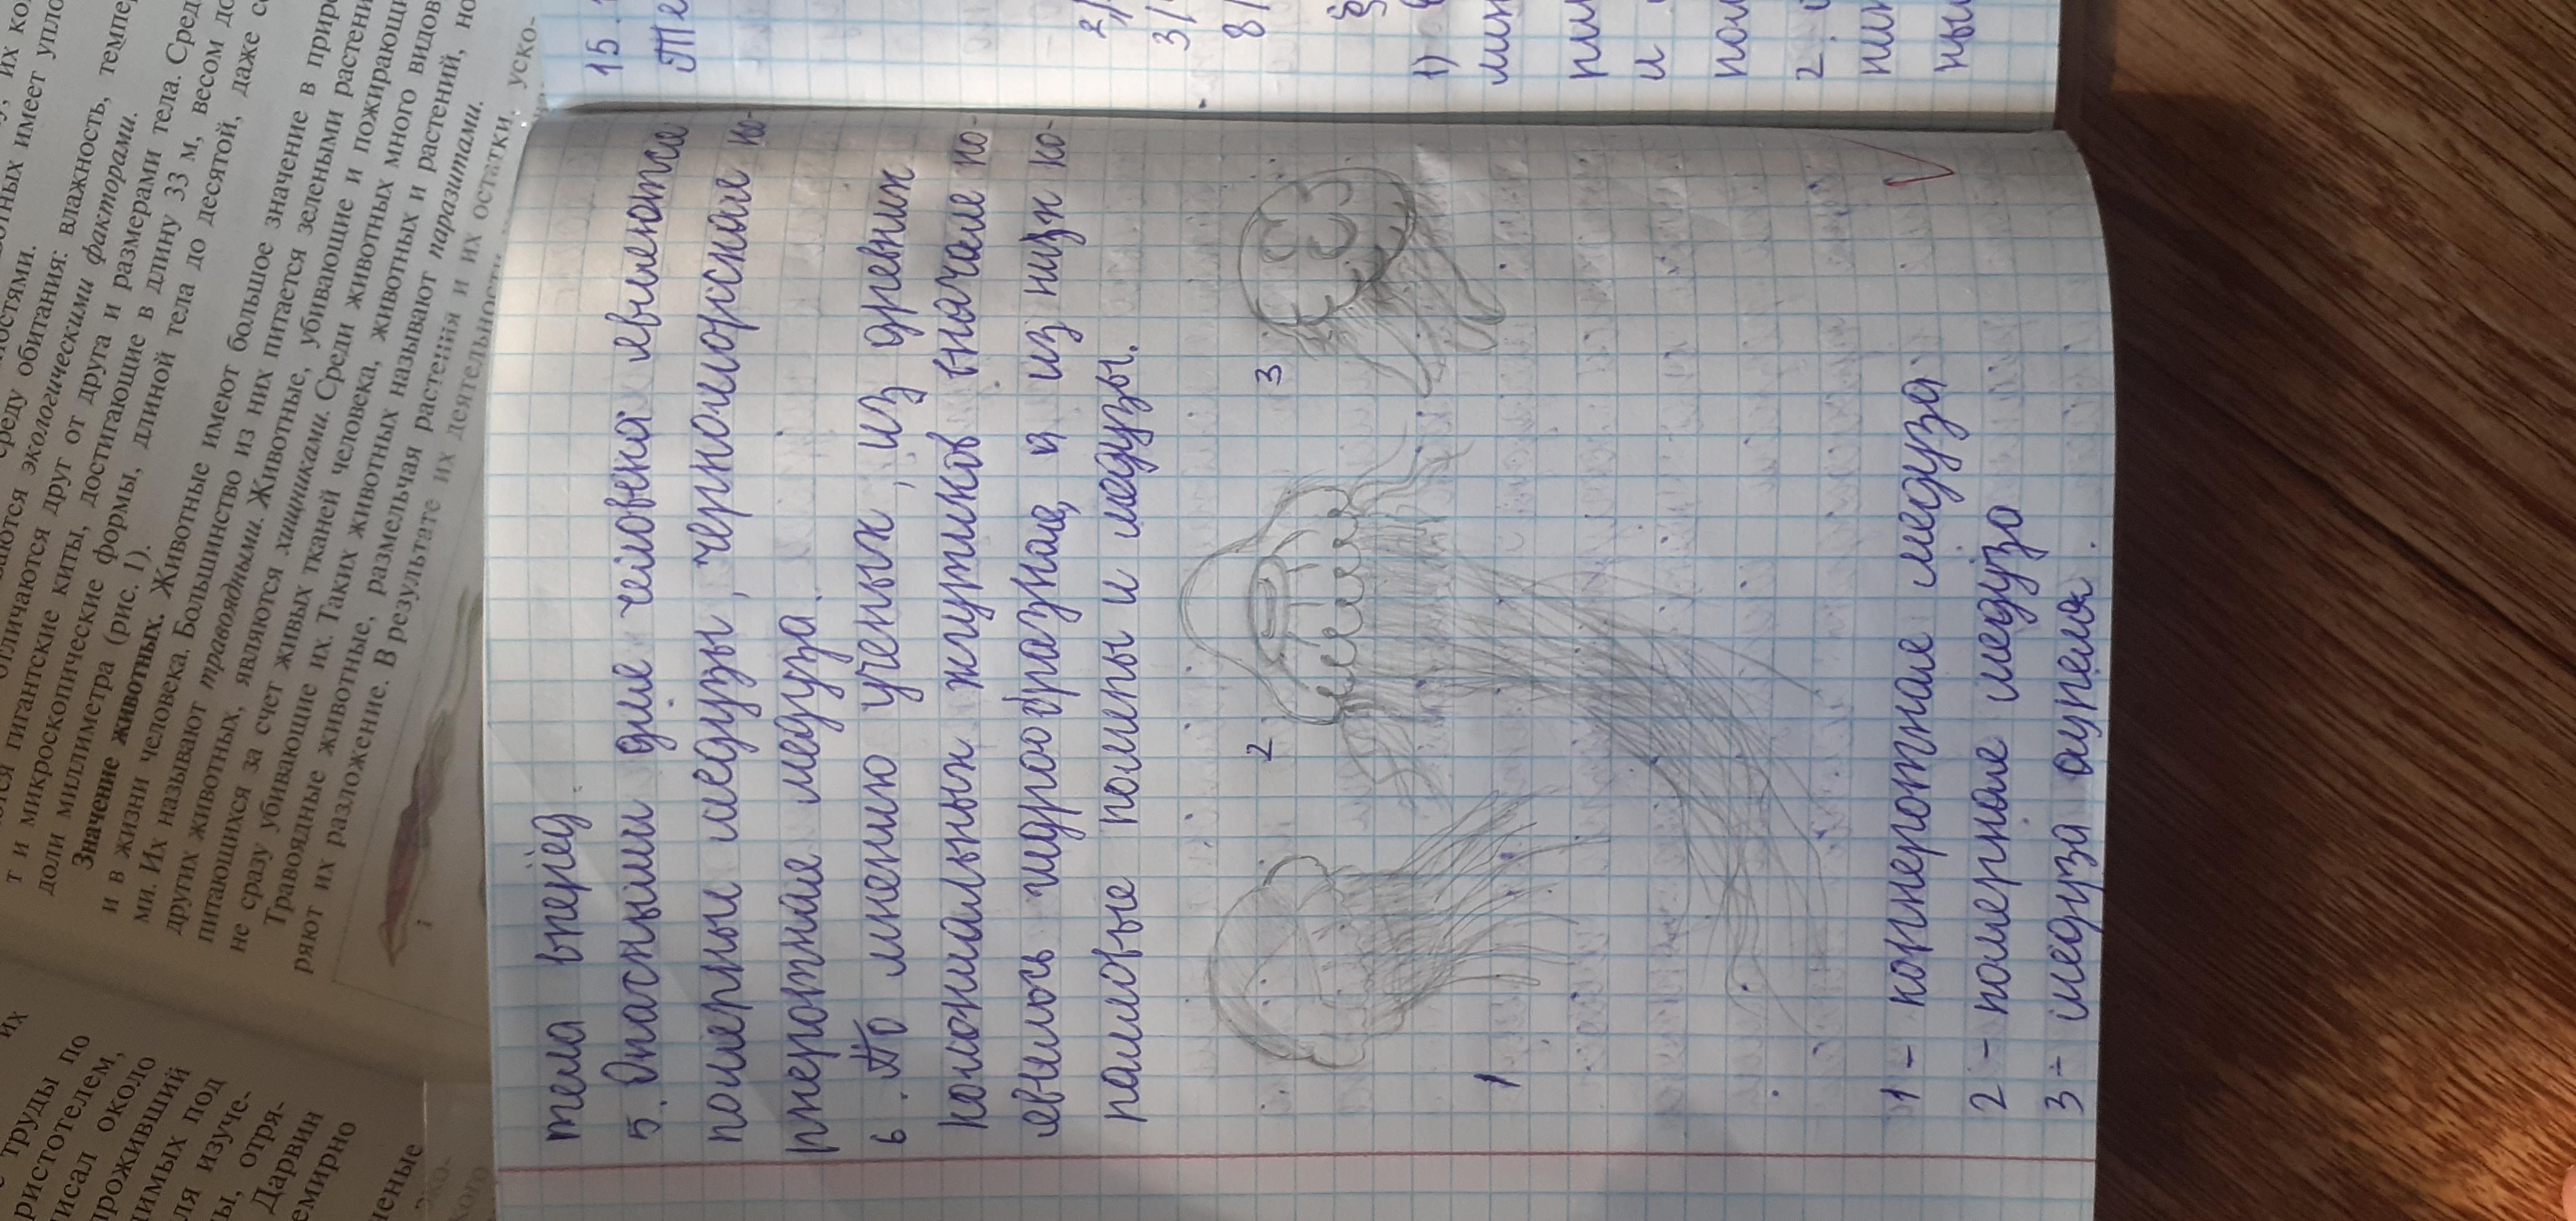 тела вперёд.
5. Опасными для человека являются
полярные медузы, черноморская ко-
рнеротная медуза.
6. По мнению ученых, из древних
колониальных жгутиков вначале по-
явилось гидрообразная, а из них ко-
ралловые полипы и медузы.
2
3
1
1 - корнеротная медуза
2 - полярная медуза
3 - медуза аурелия.
15.
Те
2/
3/
8/
§
1)
мин
пли
и
пол
2.
ник
ны
среду обитания: влажность, темпе
экологическими факторами.
отличаются друг от друга и размерами тела. Сред
гигантские киты, достигающие в длину 33 м, весом до
т и микроскопические формы, длиной тела до десятой, даже со
доли миллиметра (рис. 1).
Значение животных. Животные имеют большое значение в приро
и в жизни человека. Большинство из них питается зелеными растени
ми. Их называют травоядными. Животные, убивающие и пожирающи
других животных, являются хищниками. Среди животных много видов
питающихся за счет живых тканей человека, животных и растений, но
не сразу убивающие их. Таких животных называют паразитами.
Травоядные животные, размельчая растения и их остатки, уско-
ряют их разложение. В результате их деятельности
их
труды по
ристотелем,
исал около
проживший
имых под
ля изуче-
ы, отря-
Дарвин
емирно
ченые